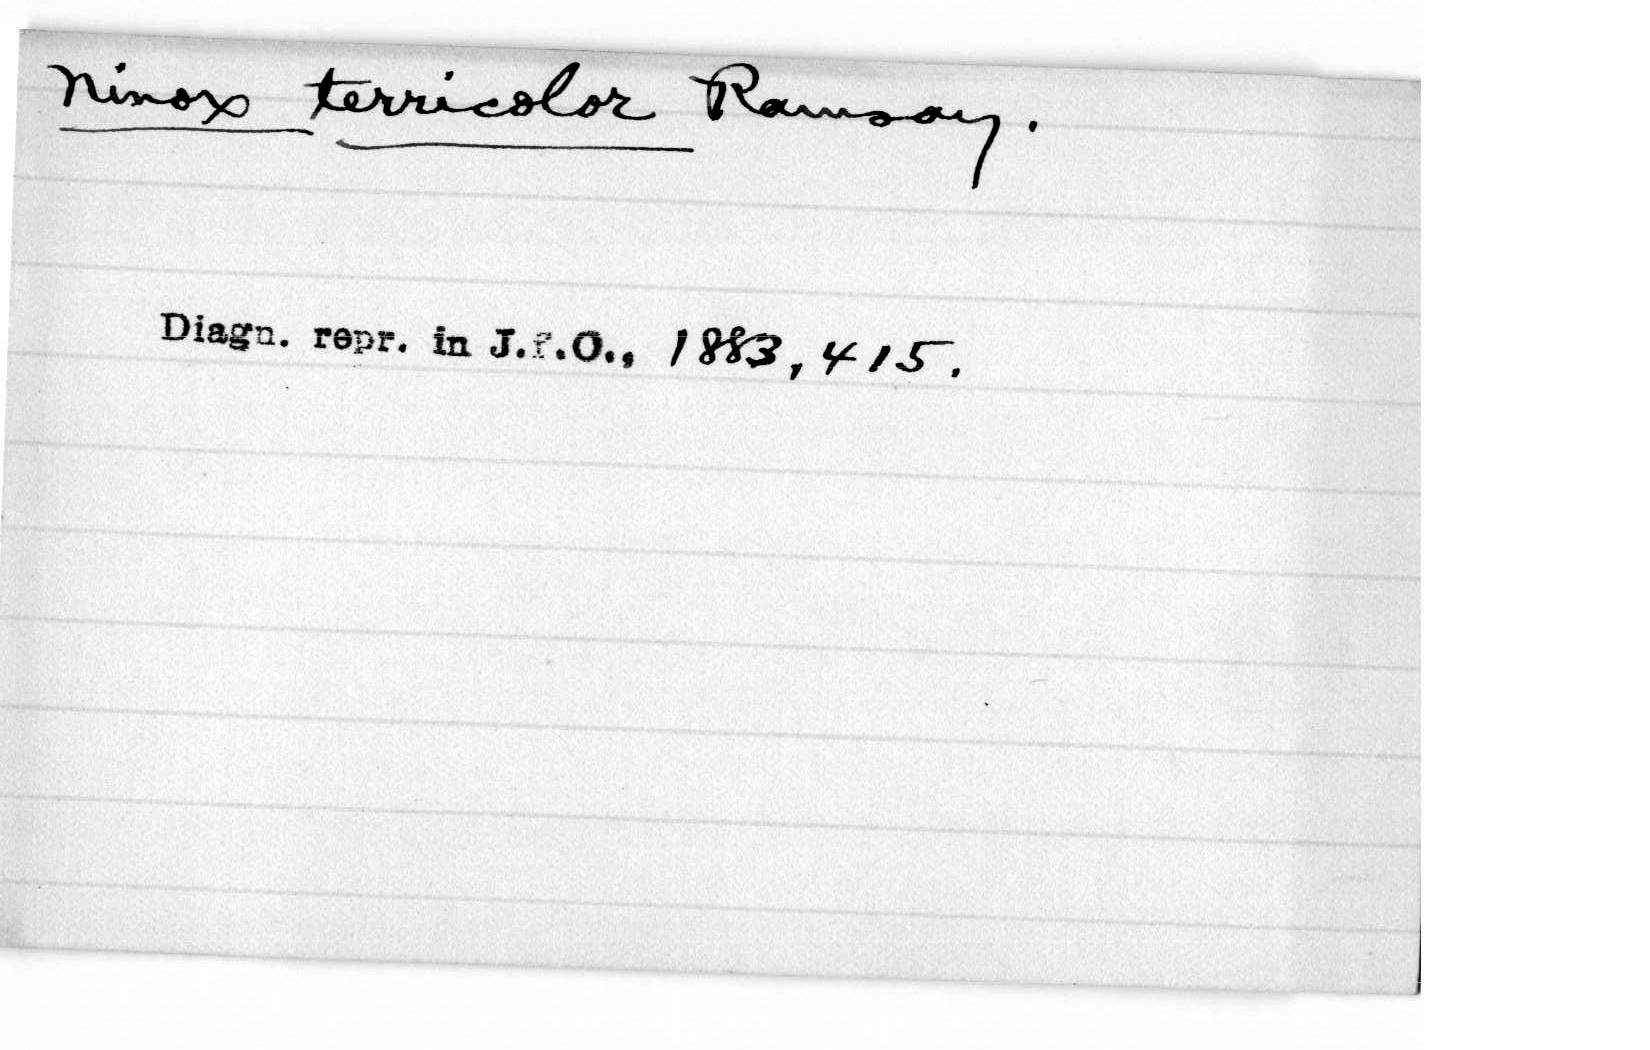 Ninox terricolor Ramsay.
Diagn. repr. in J.f.O., 1883, 415.